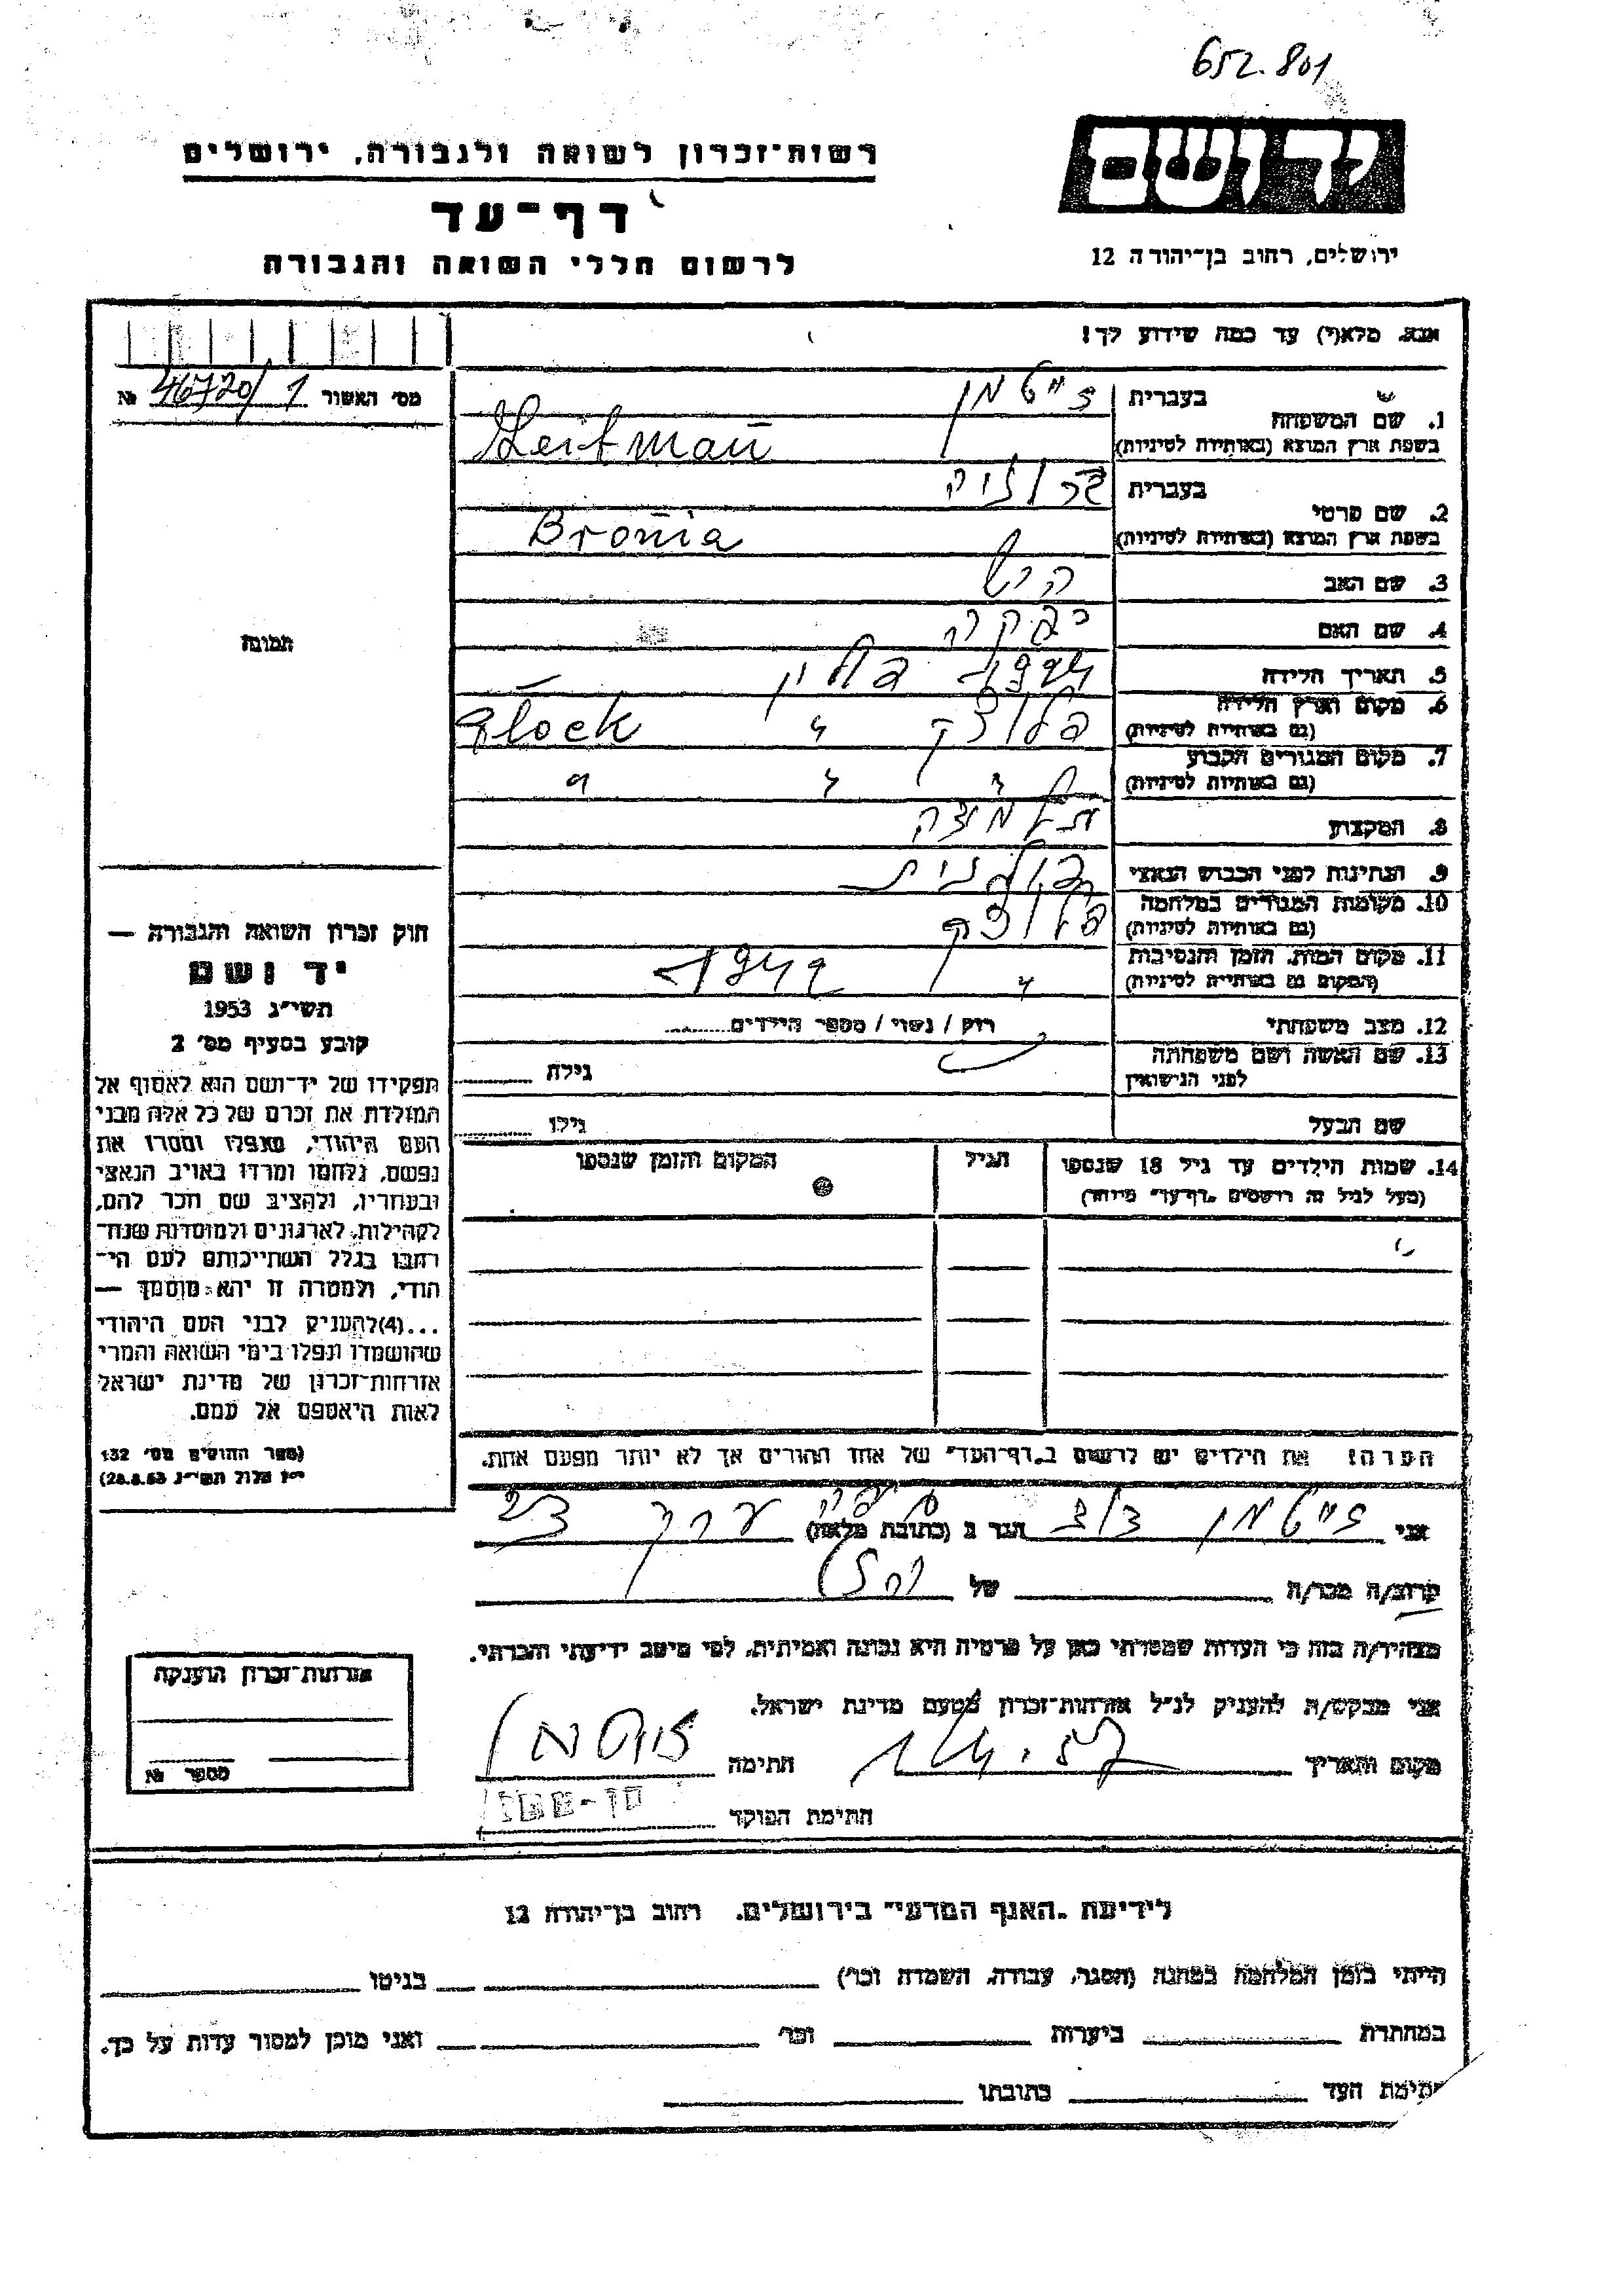 652.801
יד ושם
רשות־זכרון לשואה ולגבורה, ירושלים
דף־עד
לרשום חללי השואה והגבורה
ירושלים, רחוב בן־יהודה 12
אנא, מלא(י) עד כמה שידוע לך!
מס׳ האשור 46720/1 №
תמונה
1. שם המשפחה
בעברית זייטמן
בשפת ארץ המוצא (באותיות לטיניות) Zeitman
2. שם פרטי
בעברית ברוניה
בשפת ארץ המוצא (באותיות לטיניות) Bronia
3. שם האב הירש
4. שם האם רבקה
5. תאריך הלידה
6. מקום וארץ הלידה
(גם באותיות לטיניות) פלוצק " Plock
7. מקום המגורים הקבוע
(גם באותיות לטיניות) " " "
8. המקצוע תלמידה
9. הנתינות לפני הכבוש הנאצי פולנית
10. מקומות המגורים במלחמה
(גם באותיות לטיניות) פלוצק
11. מקום המות, הזמן והנסיבות
(המקום גם באותיות לטיניות) " 1942
12. מצב משפחתי רוק / נשוי / מספר הילדים
13. שם האשה ושם משפחתה
לפני הנישואין גילה
שם הבעל גילו
14. שמות הילדים עד גיל 18 שנספו הגיל המקום והזמן שנספו
(מעל לגיל זה רושמים „דף־עד" מיוחד)
הערה! את הילדים יש לרשום ב„דף־העד" של אחד ההורים אך לא יותר מפעם אחת.
חוק זכרון השואה והגבורה —
יד ושם
תשי״ג 1953
קובע בסעיף מס׳ 2
תפקידו של יד־ושם הוא לאסוף אל
המולדת את זכרם של כל אלה מבני
העם היהודי, שנפלו ומסרו את
נפשם, נלחמו ומרדו באויב הנאצי
ובעוזריו, ולהציב שם וזכר להם,
לקהילות, לארגונים ולמוסדות שנח־
רבו בגלל השתייכותם לעם הי־
הודי, ולמטרה זו יהא מוסמך —
...(4)להעניק לבני העם היהודי
שהושמדו ונפלו בימי השואה והמרי
אזרחות־זכרון של מדינת ישראל
לאות היאספם אל עמם.
(ספר החוקים מס׳ 132
י״ז אלול תשי״ג 28.8.53)
אני זייטמן הגר ב (כתובת מלאה)
קרוב/ה מכר/ה של
מצהיר/ה בזה כי העדות שמסרתי כאן על פרטיה היא נכונה ואמיתית, לפי מיטב ידיעתי והכרתי.
אני מבקש/ת להעניק לנ״ל אזרחות־זכרון מטעם מדינת ישראל.
מקום ותאריך חתימה
חתימת הפוקד
אזרחות־זכרון הוענקה
מספר №
לידיעת „האגף המדעי" בירושלים, רחוב בן־יהודה 12
הייתי בזמן המלחמה במחנה (הסגר, עבודה, השמדה וכו׳) בגיטו
במחתרת ביערות וכו׳ ואני מוכן למסור עדות על כך.
חתימת העד כתובתו